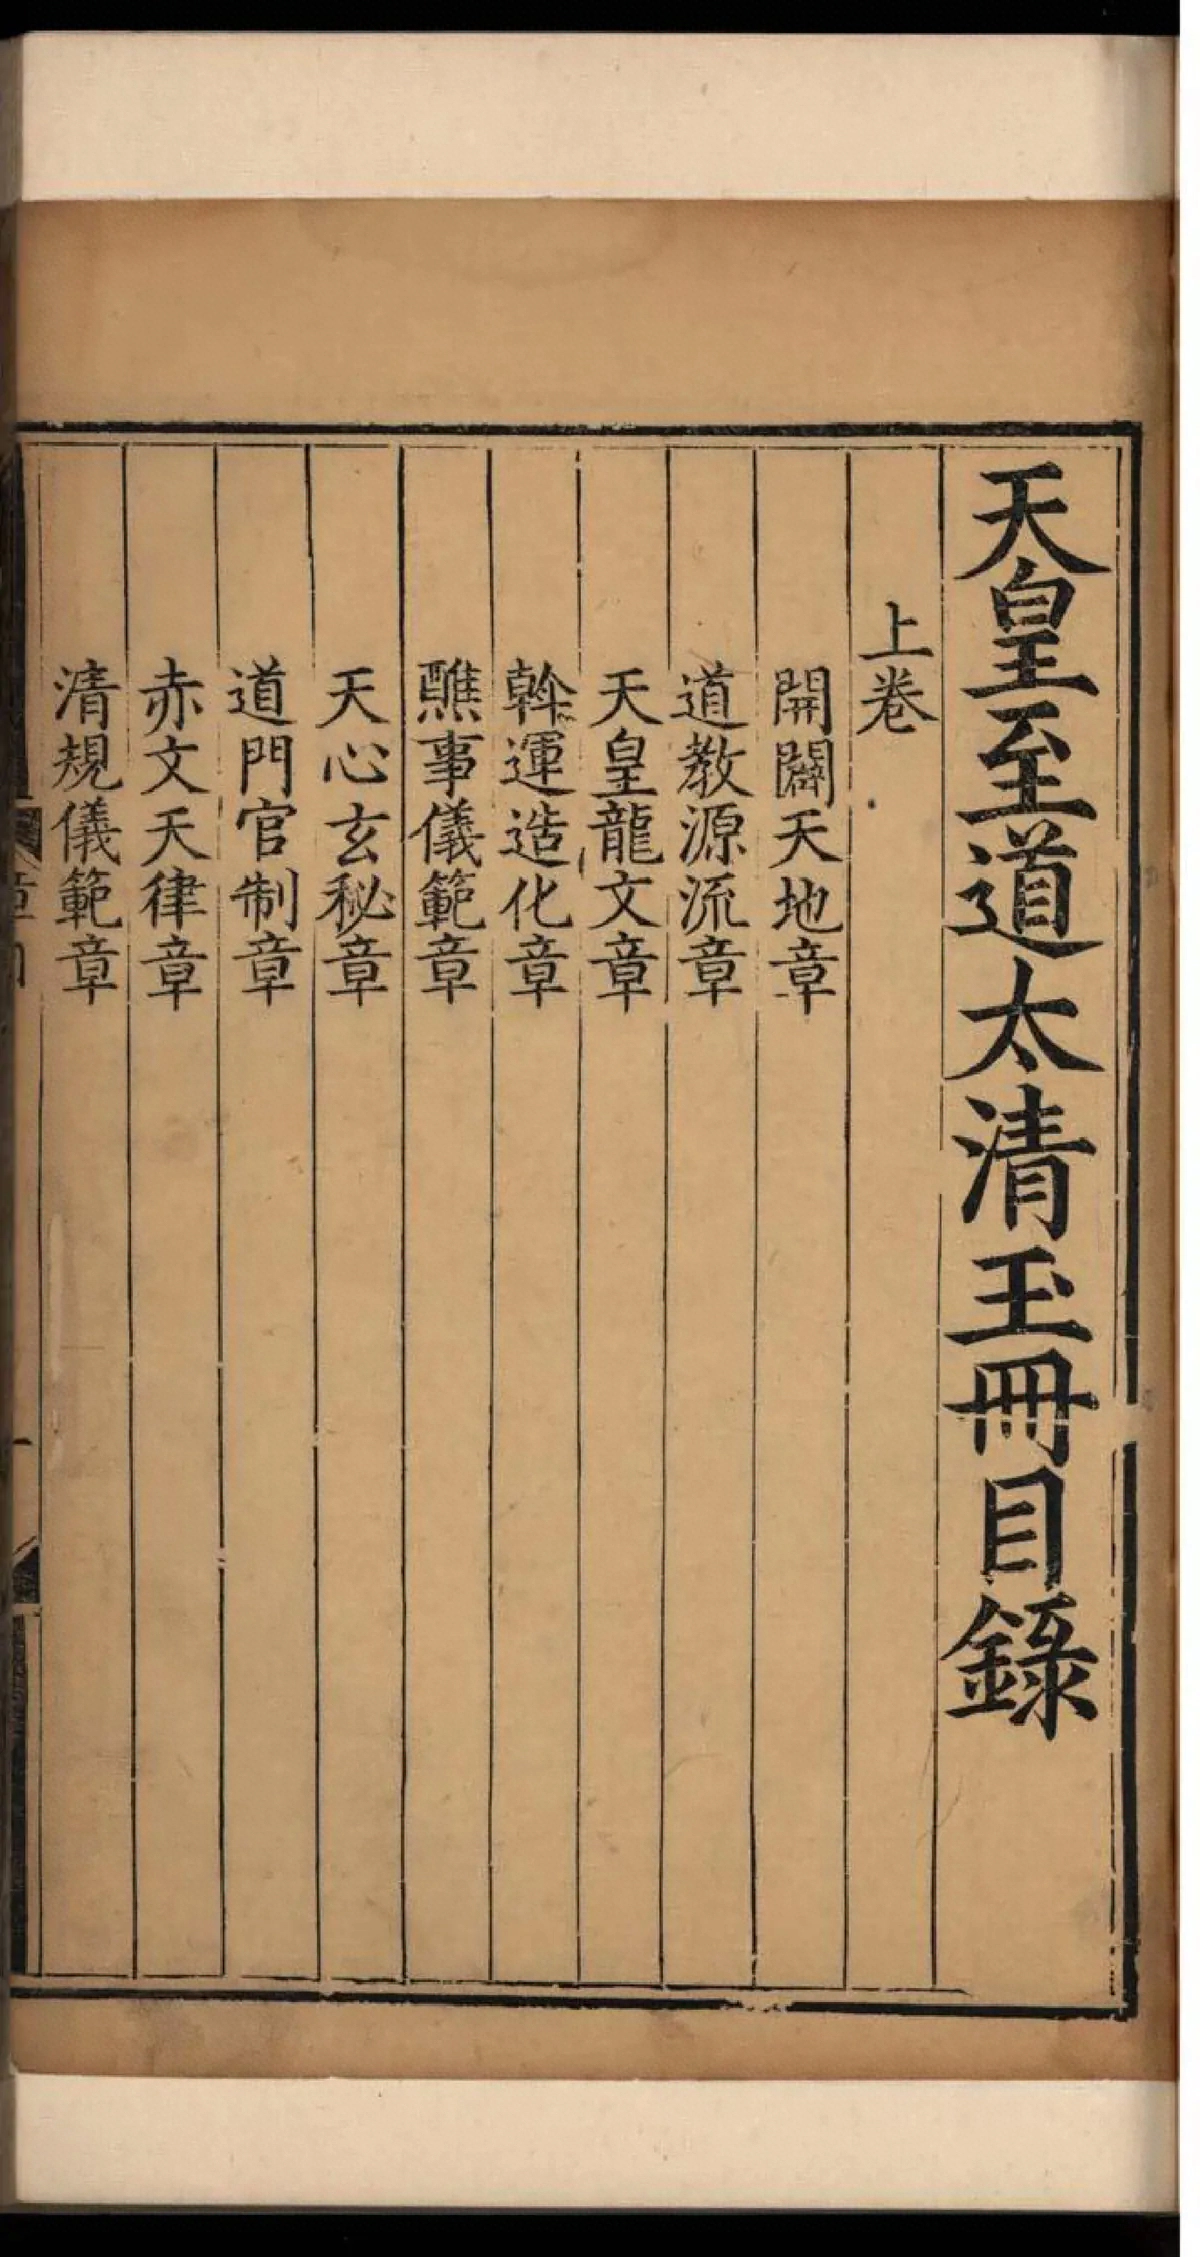 天皇至道太清玉冊目錄
上卷
開闢天地章
道教源流章
天皇龍文章
斡運造化章
醮事儀範章
天心玄秘章
道門官制章
赤文天律章
清規儀範章